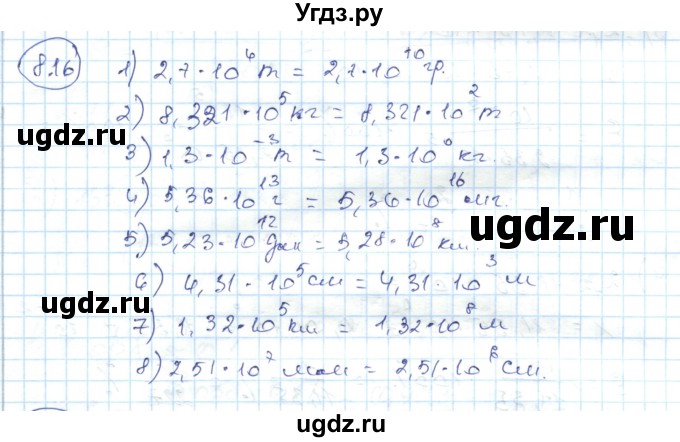 Угдз.ру
8.16
1) 2,7·10⁴ т = 2,7·10¹⁰ гр.
2) 8,321·10⁵ кг = 8,321·10² т
3) 1,3·10⁻³ т = 1,3·10⁰ кг.
4) 5,36·10¹³ г = 5,36·10¹⁶ мг.
5) 5,23·10¹² дм = 5,28·10⁸ км.
6) 4,31·10⁵ см = 4,31·10³ м
7) 1,32·10⁵ км = 1,32·10⁸ м
8) 2,51·10⁷ мм = 2,51·10⁶ см.
ugdz.ru
ugdz.ru
ugdz.ru
ugdz.ru
ugdz.ru
ugdz.ru